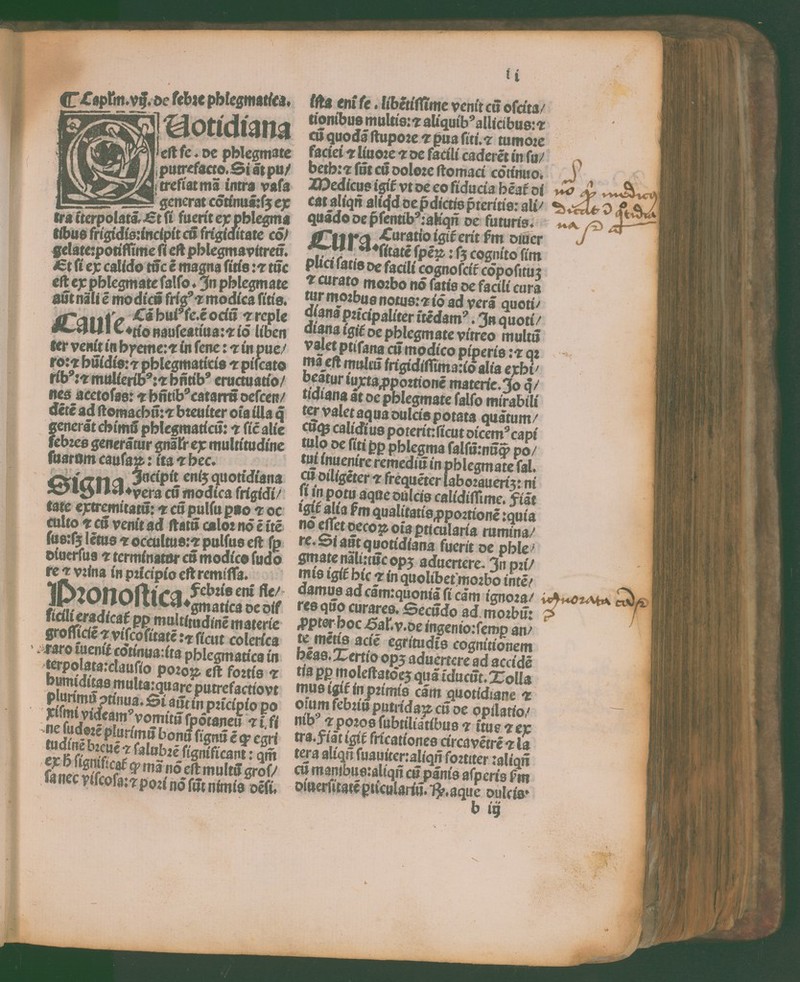 ii
¶ Capl̃m.vij. de febre phlegmatica.
QUotidiana
est fe. de phlegmate
putrefacto. Si āt pu/
trefiat mā intra vasa
generat cōtinuā:sꝫ ex
tra īterpolatā. Et si fuerit ex phlegma
tibus frigidis:incipit cū frigiditate cō/
gelate:potissime si est phlegma vitreū.
Et si ex calido tūc ē magna sitis:⁊ tūc
est ex phlegmate salso. In phlegmate
aūt nāli ē modicū frigꝰ ⁊ modica sitis.
Cause. Cā huiꝰ fe.ē ociū ⁊ reple
tio nauseatiua:⁊ iō liben
ter venit in hyeme:⁊ in sene: ⁊ in pue/
ro:⁊ hūidis:⁊ phlegmaticis ⁊ piscato
ribꝰ:⁊ mulieribꝰ:⁊ hn̄tibꝰ eructuatio/
nes acetosas: ⁊ hn̄tibꝰ catarrū descen/
dētē ad stomachū:⁊ breuiter oīa illa q̄
generāt chimū phlegmaticū: ⁊ sic̄ alie
febres generātur gnālr̄ ex multitudine
suarum causaꝝ: ita ⁊ hec.
Signa. Incipit eniꝫ quotidiana
vera cū modica frigidi/
tate extremitatū: ⁊ cū pulsu ꝓuo ⁊ oc
culto ⁊ cū venit ad statū calor nō ē ītē
sus:sꝫ lētus ⁊ occultus:⁊ pulsus est sp̄
diuersus ⁊ terminatur cū modico sudo
re ⁊ vrina in pricipio est remissa.
Pronostica. Febris eni fle/
gmatica de dif
ficili eradicat̄ ꝓp̄ multitudinē materie
grossiciē ⁊ viscositatē:⁊ sicut colerica
raro īuenit̄ cōtinua:ita phlegmatica in
terpolata:clausio poroꝝ est fortis ⁊
humiditas multa:quare putrefactiovt
plurimū ꝯtinua. Si aūt in pricipio po
xismi videamꝰ vomitū spōtaneū ⁊ ī fi
ne sudorē plurimū bonū signū ē ꝙ egri
tudinē breuē ⁊ salubrē significant: qm̄
ex h̄ significat̄ ꝙ mā nō est multū gros/
sa nec viscosa:⁊ pori nō sūt nimis dēsi.
ista enī fe. libētissime venit cū oscita/
tionibus multis:⁊ aliquibꝰ allicibus:⁊
cū quodā stupore ⁊ ꝓua siti.⁊ tumore
faciei ⁊ liuore ⁊ de facili caderēt in su/
beth:⁊ sūt cū dolore stomaci cōtinuo.
Medicus igit̄ vt de eo fiducia hēat̄ di
cat aliqñ aliqd de p̄dictis p̄teritis: ali/
quādo de p̄sentibꝰ:aliqñ de futuris.
Cura. Curatio igit̄ erit f̄m diuer
sitatē spēꝝ: sꝫ cognito sim
plici satis de facili cognoscit̄ cōposituꝫ
⁊ curato morbo nō satis de facili cura
tur morbus notus:⁊ iō ad verā quoti/
dianā pricipaliter ītēdamꝰ. In quoti/
diana igit̄ de phlegmate vitreo multū
valet ptisana cū modico piperis: ⁊ qꝛ
mā est multū frigidissima:iō alia exhi/
beātur iuxta ꝓportionē materie. Io q̄/
tidiana āt de phlegmate salso mirabili
ter valet aqua dulcis potata quātum/
cūqꝫ calidius poterit:sicut dicemꝰ capi
tulo de siti ꝓp̄ phlegma salsū:nūq̄ꝫ po/
tui inuenire remediū in phlegmate sal.
cū diligēter ⁊ frequēter laborauerīꝫ: ni
si in potu aque dulcis calidissime. Fiāt
igit̄ alia f̄m qualitatis ꝓportionē :quia
nō esset decoꝝ oīa ꝑticularia rumina/
re. Si aūt quotidiana fuerit de phle/
gmate nāli:tūc opꝫ aduertere. In pri/
mis igit̄ hic ⁊ in quolibet morbo intē/
damus ad cām:quoniā si cām ignora/
res quō curares. Secūdo ad morbū:
ꝓpter hoc Gal̄.v.de ingenio:semꝑ an/
te mētis aciē egritudīs cognitionem
hēas. Tertio opꝫ aduertere ad accidē
tia ꝓp̄ molestatōeꝫ quā īducūt. Tolla
mus igit̄ in primis cām quotidiane ⁊
oium febriū putridaꝝ cū de opilatio/
nibꝰ ⁊ poros subtiliātibus ⁊ ītus ⁊ ex
tra. Fiāt igit̄ fricationes circa vētrē ⁊ la
tera aliqñ suauiter:aliqñ fortiter :aliqñ
cū manibus:aliqñ cū pānis asperis f̄m
diuersitatē ꝑticulariū. ℞. aque dulcis
b iij
ignorata